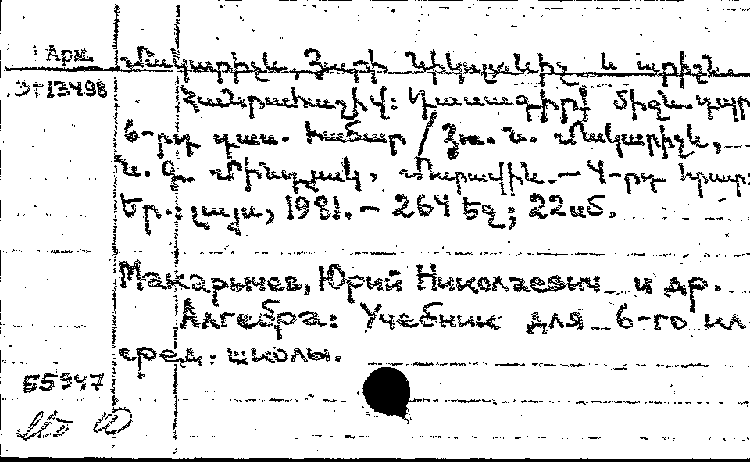 Арм. Մակարիչև, Յուրի Նիկոլաևիչ և ուրիշն.
Էт 13498 Հանրահաշիվ: Դասագիրք միջն. դպր
6-րդ դաս. համար / Յու. Ն. Մակարիչև,
Ն. Գ. Մինդյուկ, — 4-րդ հրատ:
Եր.: Լույս, 1981. — 264 էջ; 22 սմ.
Макарычев, Юрий Николаевич и др.
Алгебра: Учебник для 6-го кл
сред. школы.
55947